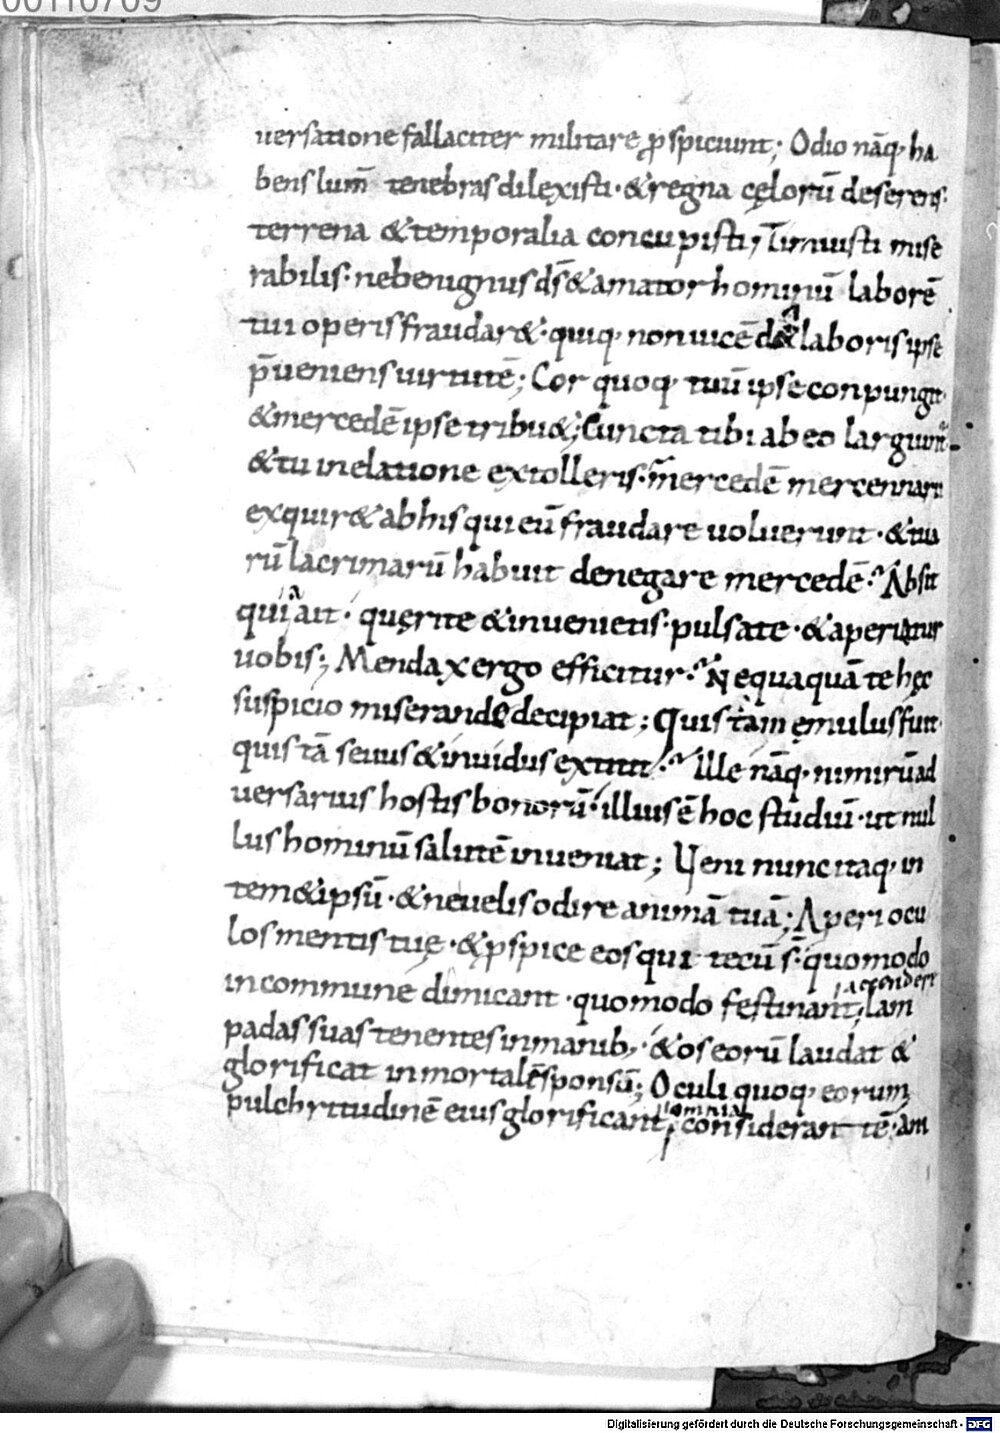 00110709
uersatione fallaciter militare ꝓspiciunt; Odio nāq· ha
bens lum̄ tenebras dilexisti· & regna cęlorū deserens·
terrena & temporalia concupisti; Timuisti mise
rabilis· ne benignus ds̄ & amator hominū laborē
tui operis fraudar&· quiq· non uicē laboris ipse
p̄ueniens uirtutē; Cor quoq· tuū ipse conpungit·
& mercedē ipse tribu&; Cuncta tibi ab eo largiunt̄
& tu in elatione extolleris· mercedē mercennarii
exquir& ab his qui eū fraudare uoluerunt· & tua
rū lacrimarū habuit denegare mercedē· Absit
qui ait· quęrite & inuenietis· pulsate· & aperietur
uobis; Mendax ergo efficitur· Nequaquā te hęc
suspicio miserande decipiat; Quis tam ęmulus fuit·
quis tā seuus & inuidus extitit· Ille nāq· nimirū ad
uersarius hostis bonorū· illius ē hoc studiū· ut nul
lus hominū salutē inueniat; Ueni nunc itaq· in
tem& ipsū· & ne uelis odire animā tuā; Aperi ocu
los mentis tuę· & ꝓspice eos qui tecū s̄· quomodo
in commune dimicant· quomodo festinant accendere lam
padas suas tenentes in manib;· & os eorū laudat &
glorificat inmortalē sponsū; Oculi quoq· eorum
pulchritudinē eius glorificant omnia considerantē· ām
Digitalisierung gefördert durch die Deutsche Forschungsgemeinschaft - DFG